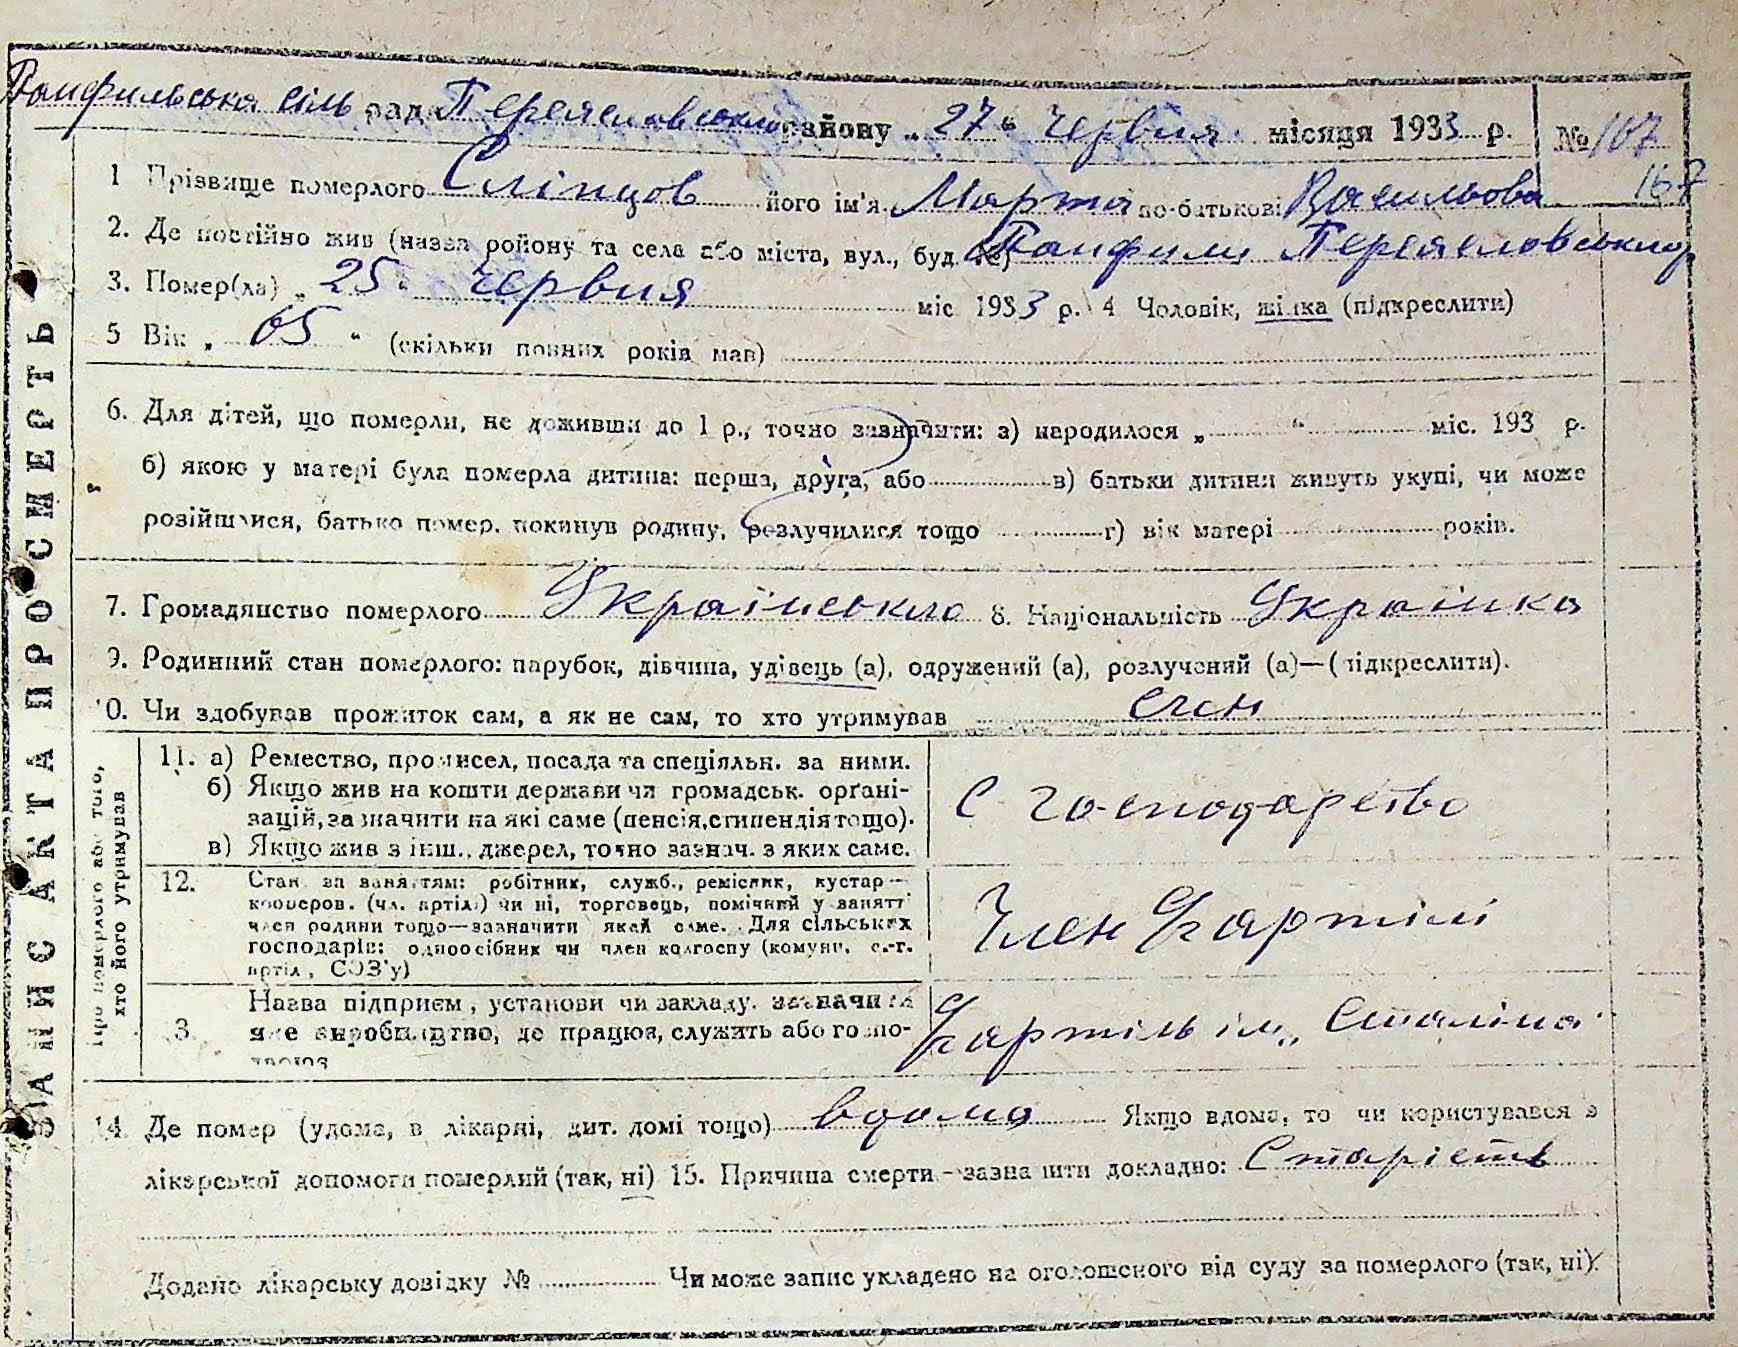 Панфильська сіль рад. Переяславського району „27“ Червня місяця 1933 р. № 167
1 Прізвище померлого Сліпцов його ім'я Марта по-батькові Васильова 167
2. Де постійно жив (назва району та села або міста, вул., буд. №) Панфили Переяславського
3. Помер(ла) „25“ Червня міс 1933 р. 4 Чоловік, жінка (підкреслити)
5 Вік „65“ (скільки повних років мав)
6. Для дітей, що померли, не доживши до 1 р., точно зазначити: а) народилося „ “ міс. 193 р.
б) якою у матері була померла дитина: перша, друга, або в) батьки дитини живуть укупі, чи може
розійшлися, батько помер, покинув родину, розлучилися тощо г) вік матері років.
7. Громадянство померлого Українського 8. Національність Українка
9. Родинний стан померлого: парубок, дівчина, удівець (а), одружений (а), розлучений (а)—(підкреслити).
10. Чи здобував прожиток сам, а як не сам, то хто утримував
ЗАПИС АКТА ПРО СМЕРТЬ
Про померлого або того,
хто його утримував
11. а) Ремество, промисел, посада та спеціяльн. за ними.
б) Якщо жив на кошти держави чи громадськ. орґані-
зацій, зазначити на які саме (пенсія, стипендія тощо).
в) Якщо жив з інш., джерел, точно зазнач. з яких саме.
С господарство
12. Стан за заняттям: робітник, служб., ремісник, кустар—
кооперов. (чл. артілі) чи ні, торговець, помічний у занятті
член родини тощо—зазначити який саме. Для сільських
господарів: одноосібник чи член колгоспу (комуни, с.-г.
артіл, СОЗ'у)
Член Ґартілі
13. Назва підприєм, установи чи закладу, зазначити
яке виробництво, де працює, служить або госпо-
дарює
Ґартіль ім„ Сталіна
14 Де помер (удома, в лікарні, дит. домі тощо) вдома Якщо вдома, то чи користувався з
лікарської допомоги померлий (так, ні) 15. Причина смерти—зазначити докладно: Старість
Додано лікарську довідку № Чи може запис укладено на оголошеного від суду за померлого (так, ні).